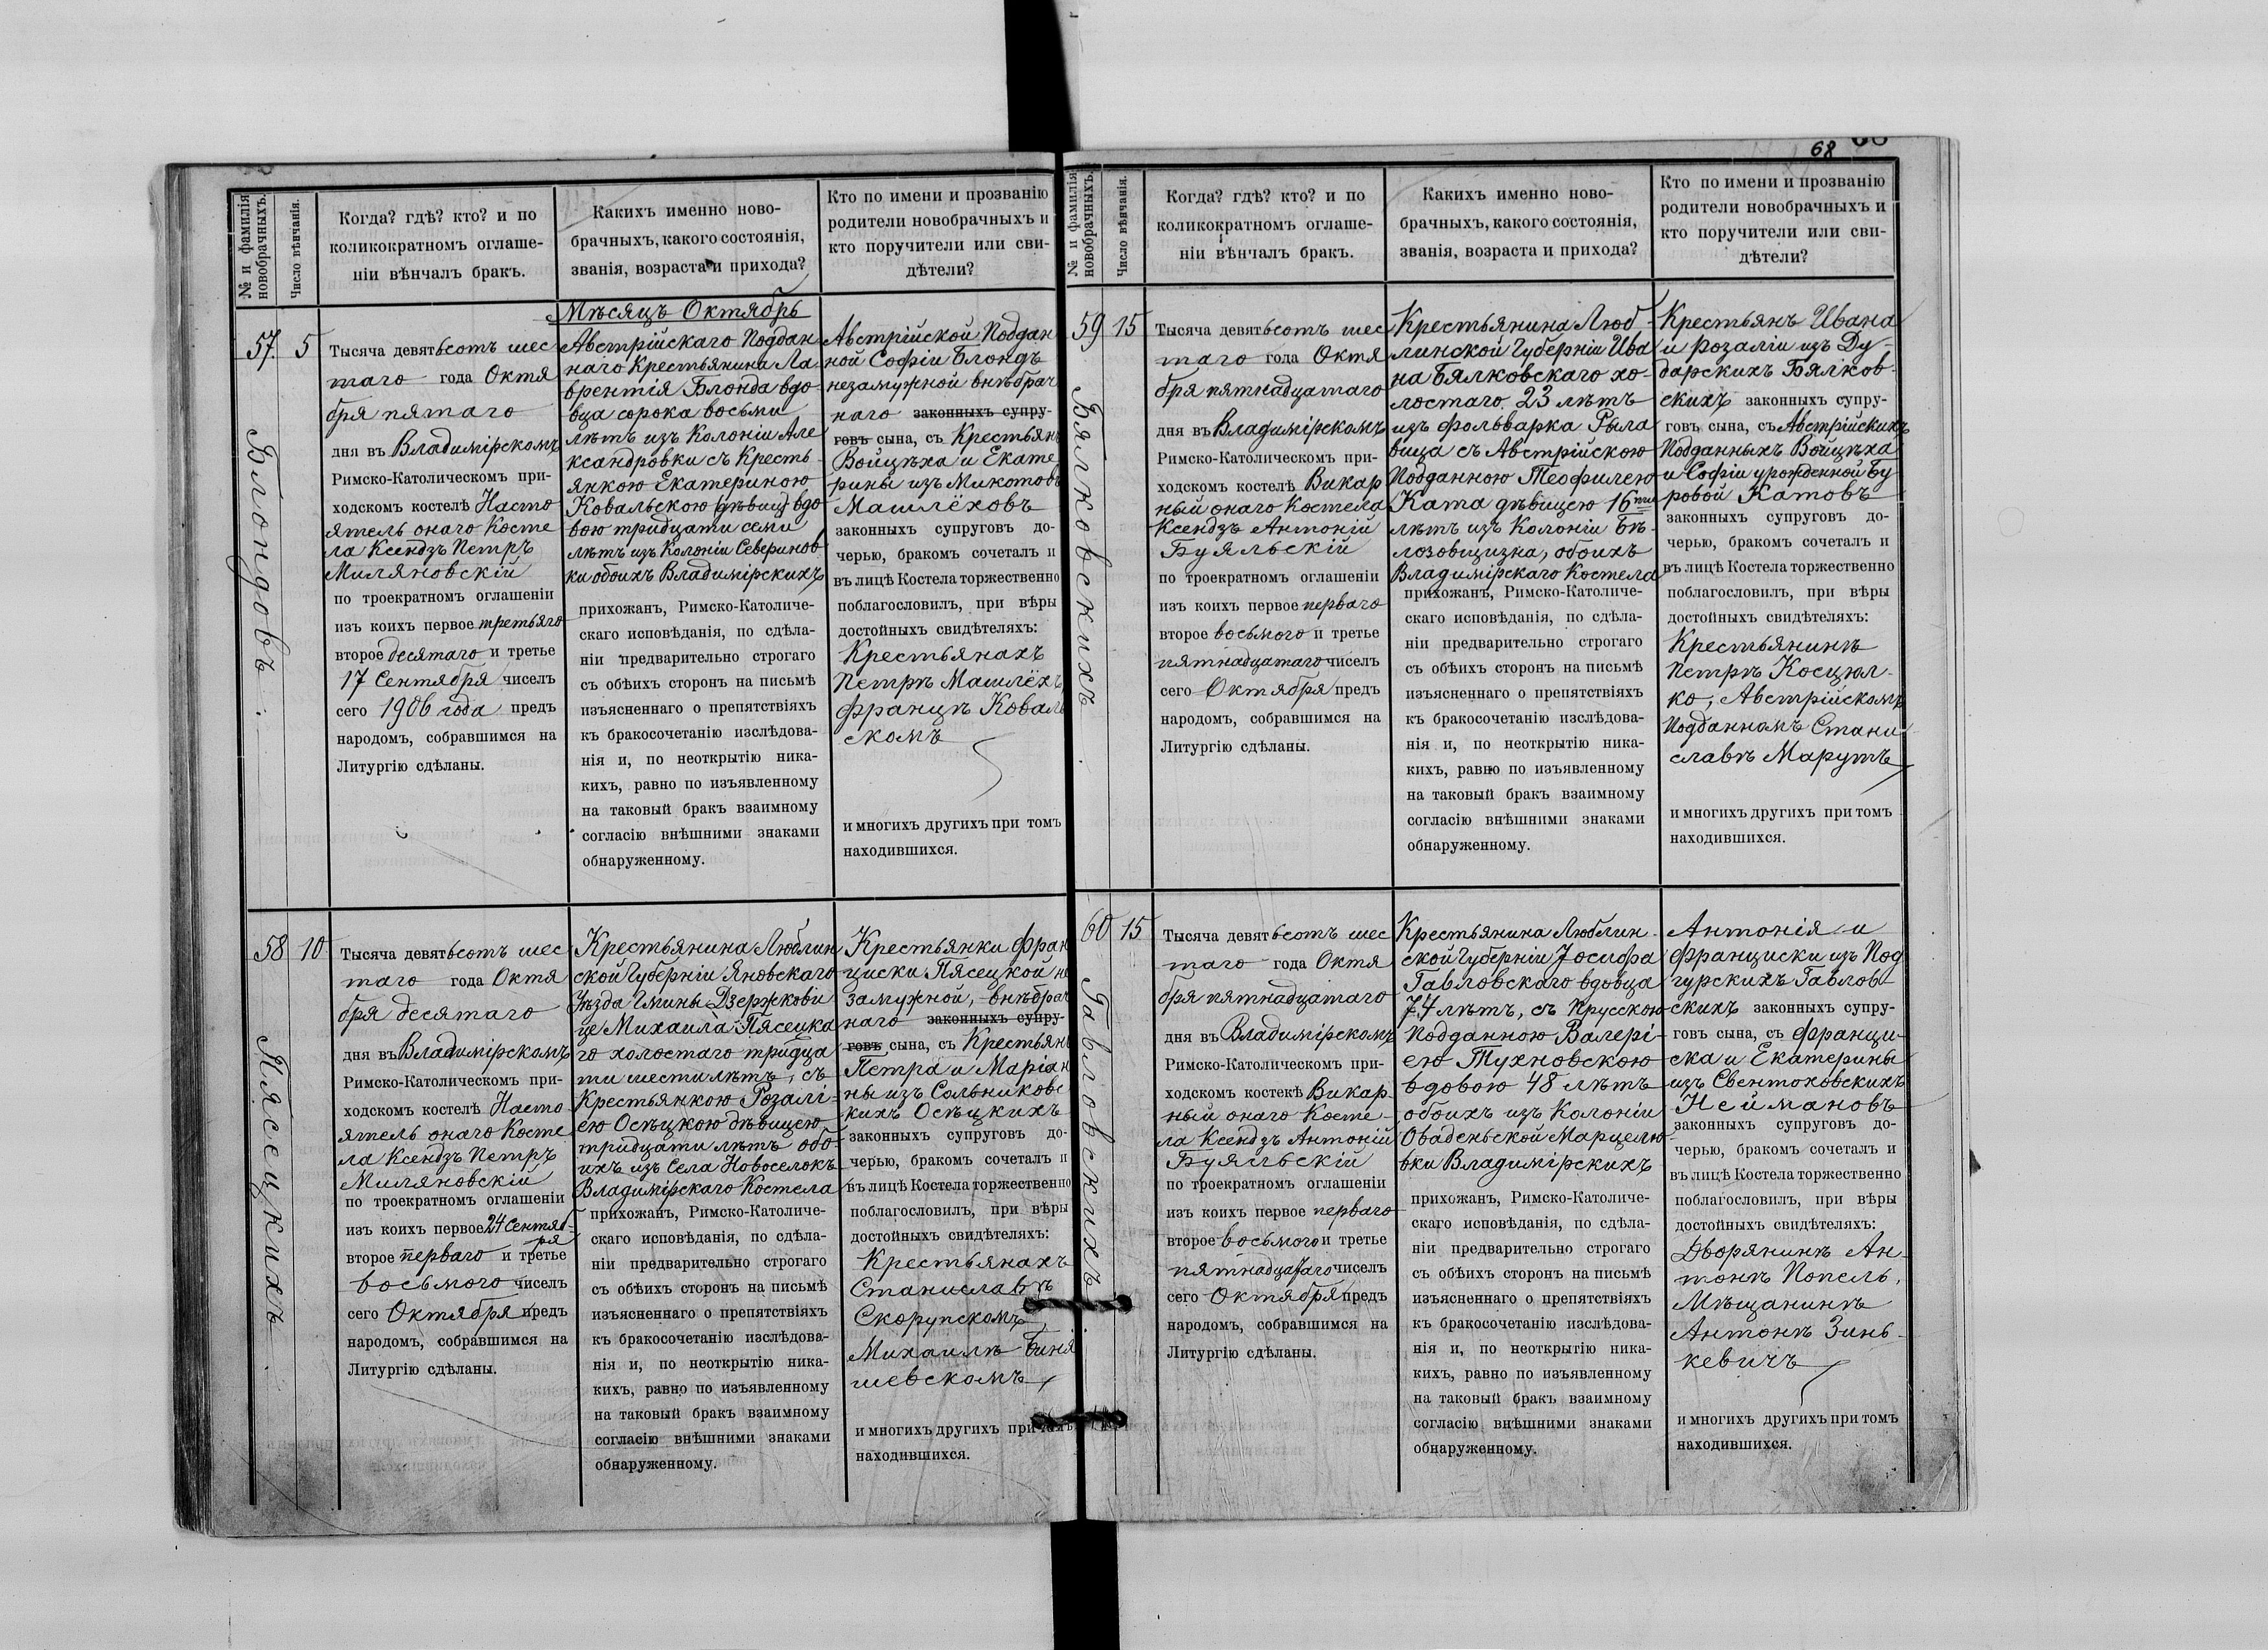 68
№ и фамилія
новобрачныхъ.
Число вѣнчанія.
Когда? гдѣ? кто? и по
коликократномъ оглаше-
ніи вѣнчалъ бракъ.
Какихъ именно ново-
брачныхъ, какого состоянія,
званія, возраста и прихода?
Кто по имени и прозванію
родители новобрачныхъ и
кто поручители или сви-
дѣтели?
Мѣсяцъ Октябрь
57.
Блондовъ.
5
Тысяча девятьсотъ шес
таго года Октя
бря пятаго
дня въ Владимірскомъ
Римско-Католическомъ при-
ходскомъ костелѣ Насто
ятель онаго Косте
ла Ксендзъ Петръ
Миляновскій
по троекратномъ оглашеніи
изъ коихъ первое третьяго
второе десятаго и третье
17 Сентября чиселъ
сего 1906 года предъ
народомъ, собравшимся на
Литургію сдѣланы.
Австрійскаго Поддан
наго Крестьянина Ла
врентія Блонда вдо
вца сорока восьми
лѣтъ изъ Колоніи Але
ксандровки съ Кресть
янкою Екатериною
Ковальскою дѣвиц вдо
вою тридцати семи
лѣтъ изъ Колоніи Северинов
ки обоихъ Владимірскихъ
прихожанъ, Римско-Католиче-
скаго исповѣданія, по сдѣла-
ніи предварительно строгаго
съ обѣихъ сторонъ на письмѣ
изъясненнаго о препятствіяхъ
къ бракосочетанію изслѣдова-
нія и, по неоткрытію ника-
кихъ, равно по изъявленному
на таковый бракъ взаимному
согласію внѣшними знаками
обнаруженному.
Австрійской Поддан
ной Софіи Блондъ
незамужной внѣбрач
наго законныхъ супру-
говъ сына, съ Крестьянъ
Войцѣха и Екате
рины изъ Микотовъ
Машлёховъ
законныхъ супруговъ до-
черью, бракомъ сочеталъ и
въ лицѣ Костела торжественно
поблагословилъ, при вѣры
достойныхъ свидѣтеляхъ:
Крестьянахъ
Петрѣ Машлёхъ
Францѣ Коваль
скомъ
и многихъ другихъ при томъ
находившихся.
58
Пясецкихъ.
10
Тысяча девятьсотъ шес
таго года Октя
бря десятаго
дня въ Владимірскомъ
Римско-Католическомъ при-
ходскомъ костелѣ Насто
ятель онаго Косте
ла Ксендзъ Петръ
Миляновскій
по троекратномъ оглашеніи
изъ коихъ первое 24 Сентяб-
ря
второе перваго и третье
восьмого чиселъ
сего Октября предъ
народомъ, собравшимся на
Литургію сдѣланы.
Крестьянина Люблин
ской Губерніи Яновскаго
Уѣзда Гмины Дзержкови
це Михаила Пясецка
го холостаго тридца
ти шести лѣтъ, съ
Крестьянкою Розалі-
ею Осѣцкою дѣвицею
тридцати лѣтъ обо
ихъ изъ Села Новоселокъ
Владимірскаго Костела
прихожанъ, Римско-Католиче-
скаго исповѣданія, по сдѣла-
ніи предварительно строгаго
съ обѣихъ сторонъ на письмѣ
изъясненнаго о препятствіяхъ
къ бракосочетанію изслѣдова-
нія и, по неоткрытію ника-
кихъ, равно по изъявленному
на таковый бракъ взаимному
согласію внѣшними знаками
обнаруженному.
Крестьянки Фран
циски Пясецкой не
замужной, внѣбрач
наго законныхъ супру-
говъ сына, съ Крестьянъ
Петра и Маріан
ны изъ Сольниковс
кихъ Осѣцкихъ
законныхъ супруговъ до-
черью, бракомъ сочеталъ и
въ лицѣ Костела торжественно
поблагословилъ, при вѣры
достойныхъ свидѣтеляхъ:
Крестьянахъ
Станиславѣ
Скорупскомъ,
Михаилѣ
шевскомъ
и многихъ другихъ при томъ
находившихся.
№ и фамилія
новобрачныхъ.
Число вѣнчанія.
Когда? гдѣ? кто? и по
коликократномъ оглаше-
ніи вѣнчалъ бракъ.
Какихъ именно ново-
брачныхъ, какого состоянія,
званія, возраста и прихода?
Кто по имени и прозванію
родители новобрачныхъ и
кто поручители или сви-
дѣтели?
59
Бялковскихъ.
15
Тысяча девятьсотъ шес
таго года Октя
бря пятнадцатаго
дня въ Владимірскомъ
Римско-Католическомъ при-
ходскомъ костелѣ Викар
ный онаго Костела
Ксендзъ Антоній
Буяльскій
по троекратномъ оглашеніи
изъ коихъ первое перваго
второе восьмого и третье
пятнадцатаго чиселъ
сего Октября предъ
народомъ, собравшимся на
Литургію сдѣланы.
Крестьянина Люб-
линской Губерніи Ива
на Бялковскаго хо-
лостаго 23 лѣтъ
изъ фольварка Рыла
вица съ Австрійскою
Подданною Теофилею
Ката дѣвицею 16ти
лѣтъ изъ Колоніи Бѣ-
лозовщизна, обоихъ
Владимірскаго Костела
прихожанъ, Римско-Католиче-
скаго исповѣданія, по сдѣла-
ніи предварительно строгаго
съ обѣихъ сторонъ на письмѣ
изъясненнаго о препятствіяхъ
къ бракосочетанію изслѣдова-
нія и, по неоткрытію ника-
кихъ, равно по изъявленному
на таковый бракъ взаимному
согласію внѣшними знаками
обнаруженному.
Крестьянъ Ивана
и Розаліи изъ Ду-
дарскихъ Бялков-
скихъ законныхъ супру-
говъ сына, съ Австрійскихъ
Подданныхъ Войцѣха
и Софіи урожденной Бу
ровой Катовъ
законныхъ супруговъ до-
черью, бракомъ сочеталъ и
въ лицѣ Костела торжественно
поблагословилъ, при вѣры
достойныхъ свидѣтеляхъ:
Крестьянинѣ
Петрѣ Косцюл-
ко, Австрійскомъ
Подданномъ Стани
славѣ Марутъ
и многихъ другихъ при томъ
находившихся.
60
Гавловскихъ.
15
Тысяча девятьсотъ шес
таго года Октя
бря пятнадцатаго
дня въ Владимірскомъ
Римско-Католическомъ при-
ходскомъ костекѣ Викар
ный онаго Косте-
ла Ксендзъ Антоній
Буяльскій
по троекратномъ оглашеніи
изъ коихъ первое перваго
второе восьмого и третье
пятнадцатаго чиселъ
сего Октября предъ
народомъ, собравшимся на
Литургію сдѣланы.
Крестьянина Люблин-
ской Губерніи Іосифа
Гавловскаго вдовца
74 лѣтъ, съ Прусскою
Подданною Валері-
ею Тухновскою
вдовою 48 лѣтъ
обоихъ изъ Колоніи
Оваденьской Марцелю-
вки Владимірскихъ
прихожанъ, Римско-Католиче-
скаго исповѣданія, по сдѣла-
ніи предварительно строгаго
съ обѣихъ сторонъ на письмѣ
изъясненнаго о препятствіяхъ
къ бракосочетанію изслѣдова-
нія и, по неоткрытію ника-
кихъ, равно по изъявленному
на таковый бракъ взаимному
согласію внѣшними знаками
обнаруженному.
Антонія и
Франциски изъ Под
гурскихъ Гавлов-
скихъ законныхъ супру-
говъ сына, съ Франци-
ска и Екатерины
изъ Свентоховскихъ
Неймановъ
законныхъ супруговъ до-
черью, бракомъ сочеталъ и
въ лицѣ Костела торжественно
поблагословилъ, при вѣры
достойныхъ свидѣтеляхъ:
Дворянинѣ Ан-
тонѣ Попель,
Мѣщанинѣ
Антонѣ Зинь-
кевичъ
и многихъ другихъ при томъ
находившихся.